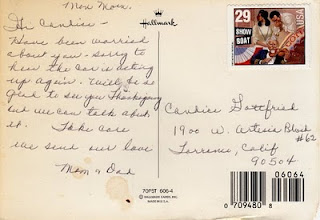 Mon Morn.
Hi Candice -
Have been worried
about you - sorry to
hear the car is acting
up again. We'll be so
glad to see you Thanksgiving
but we can talk about
it. Take care
we send our love
Mom & Dad
Hallmark
70PST 606-4
© HALLMARK CARDS, INC.
MADE IN U.S.A.
29
USA
SHOW
BOAT
Candice Gottfried
1900 W. Artesia Blvd
#62
Torrance, Calif
90504
06064
0 709480 8